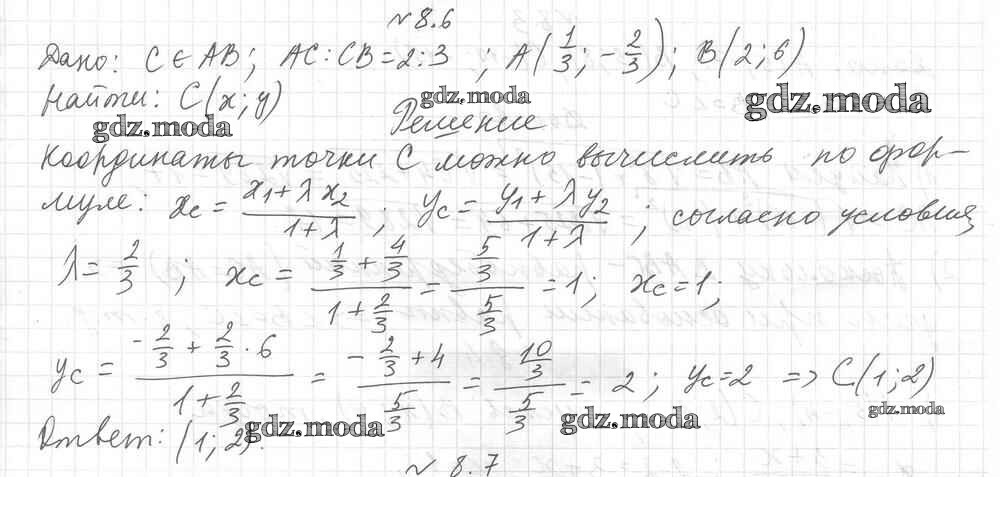 № 8.6
Дано: C ∈ AB; AC : CB = 2 : 3 ; A(1/3; -2/3); B(2; 6)
Найти: C(x; y)
gdz.moda
gdz.moda
gdz.moda
Решение
Координаты точки C можно вычислить по фор-
муле: xc = (x1 + λ x2)/(1 + λ) ; yc = (y1 + λ y2)/(1 + λ) ; согласно условия
λ = 2/3 ; xc = (1/3 + 4/3)/(1 + 2/3) = (5/3)/(5/3) = 1; xc = 1;
yc = (-2/3 + 2/3 · 6)/(1 + 2/3) = (-2/3 + 4)/(5/3) = (10/3)/(5/3) = 2 ; yc = 2 => C(1; 2)
gdz.moda
gdz.moda
gdz.moda
Ответ: (1; 2).
№ 8.7